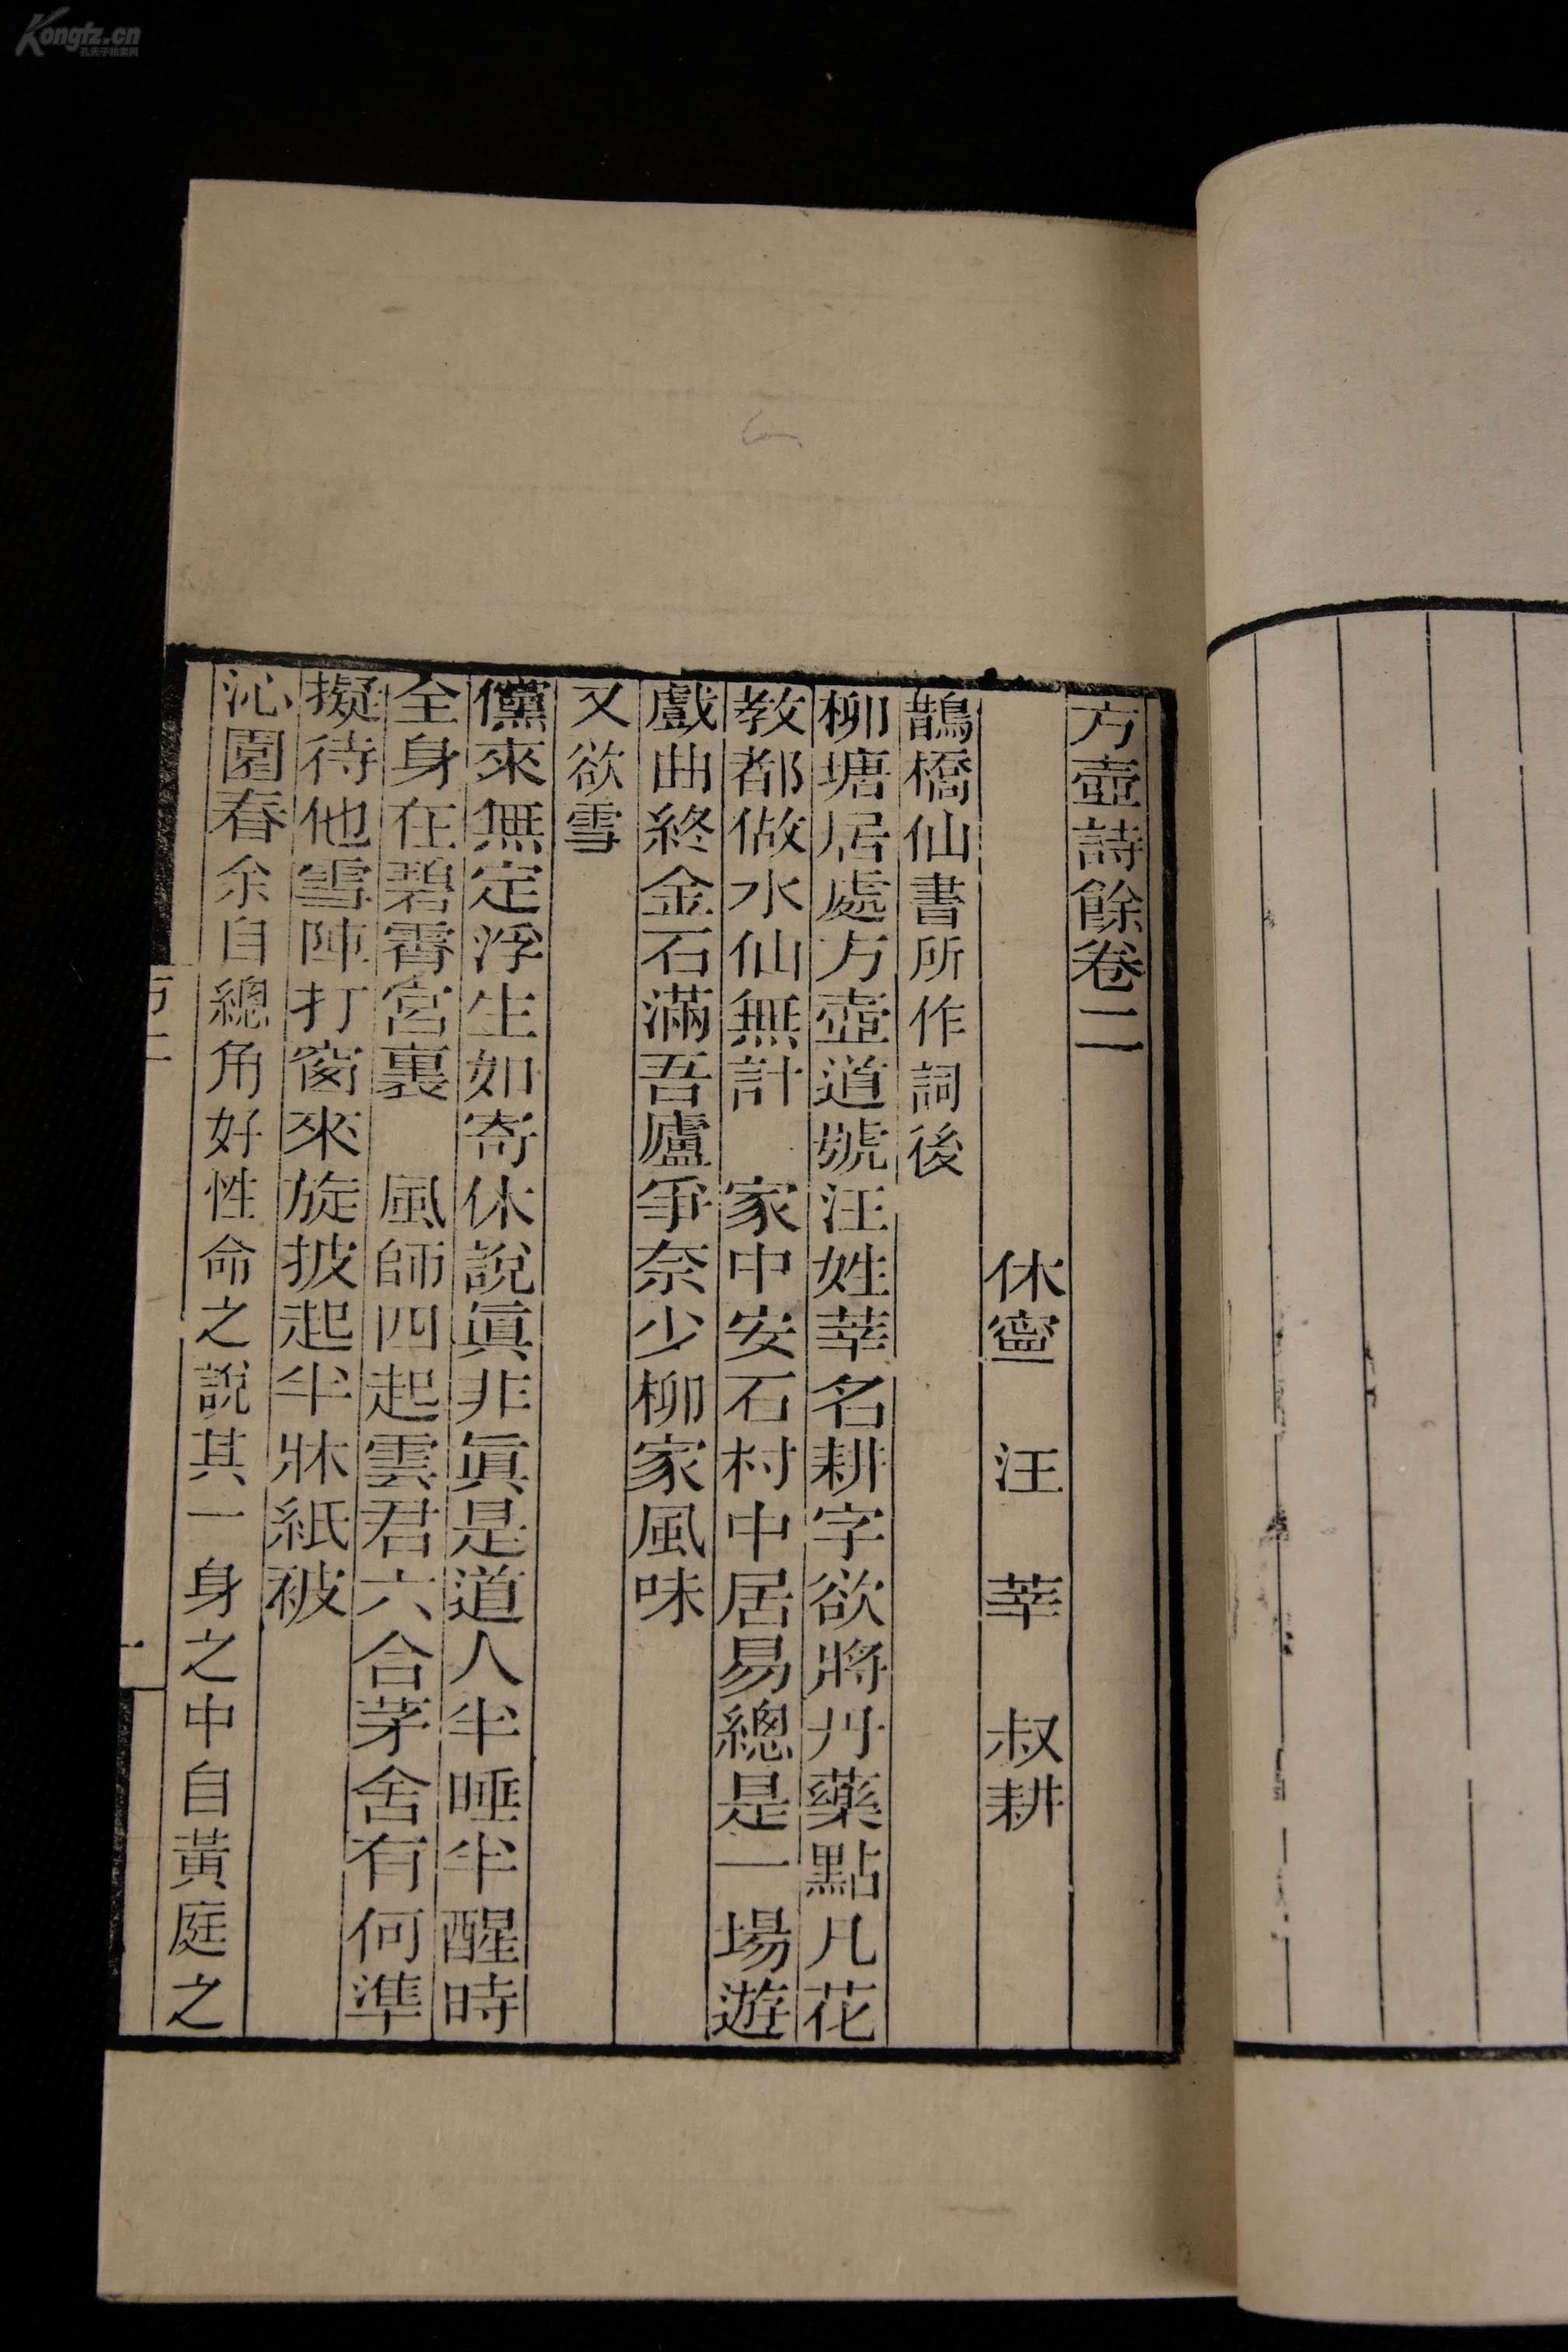 Kongfz.cn
孔夫子拍卖网
方壺詩餘卷二
休寧　汪　莘　叔耕
鵲橋仙書所作詞後
柳塘居處方壺道號汪姓莘名耕字欲將丹藥點凡花
教都做水仙無計　家中安石村中居易總是一場遊
戲曲終金石滿吾廬爭奈少柳家風味
又欲雪
儻來無定浮生如寄休說眞非眞是道人半睡半醒時
全身在碧霄宮裏　風師四起雲君六合茅舍有何準
擬待他雪陣打窗來旋披起半牀紙被
沁園春余自總角好性命之說其一身之中自黃庭之